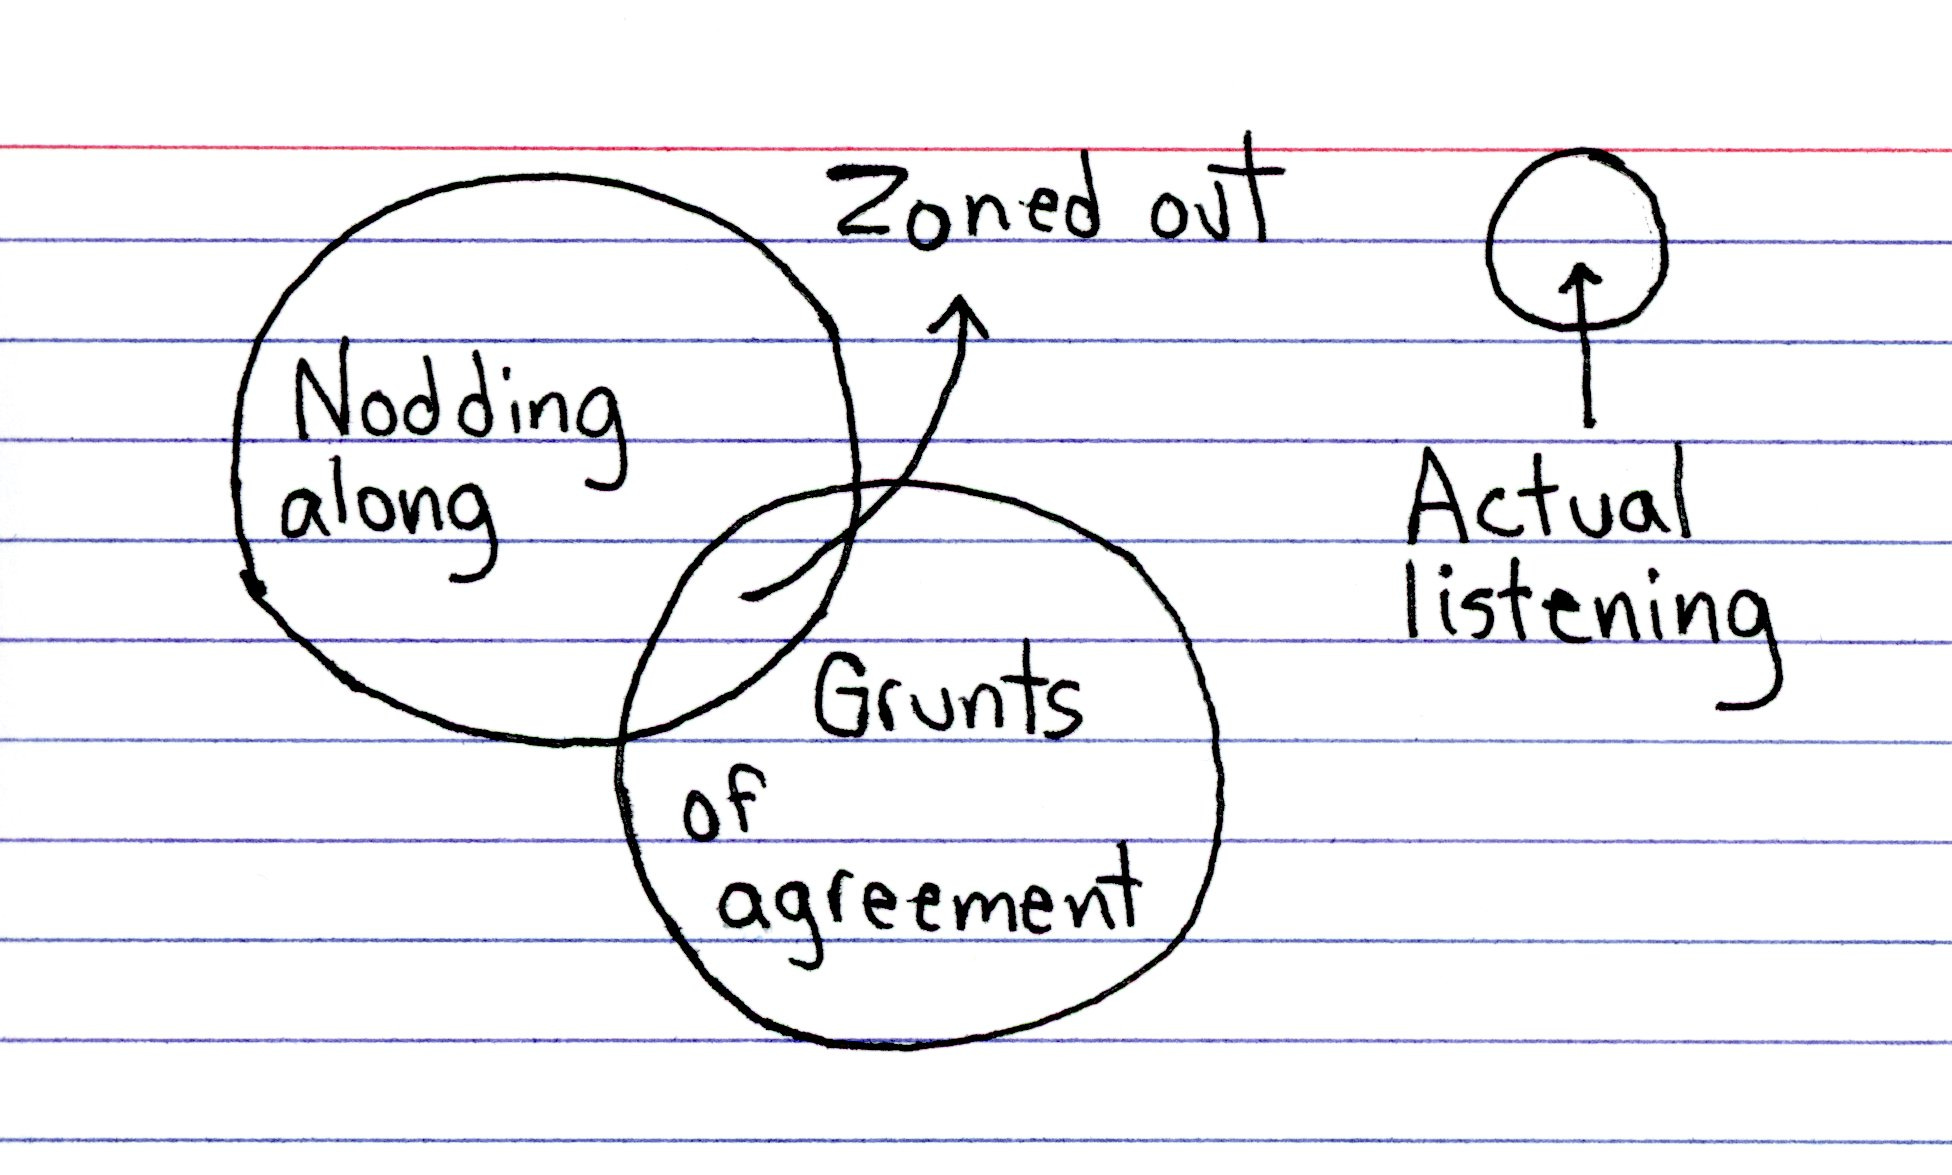 Zoned out
Nodding
along
Grunts
of
agreement
Actual
listening